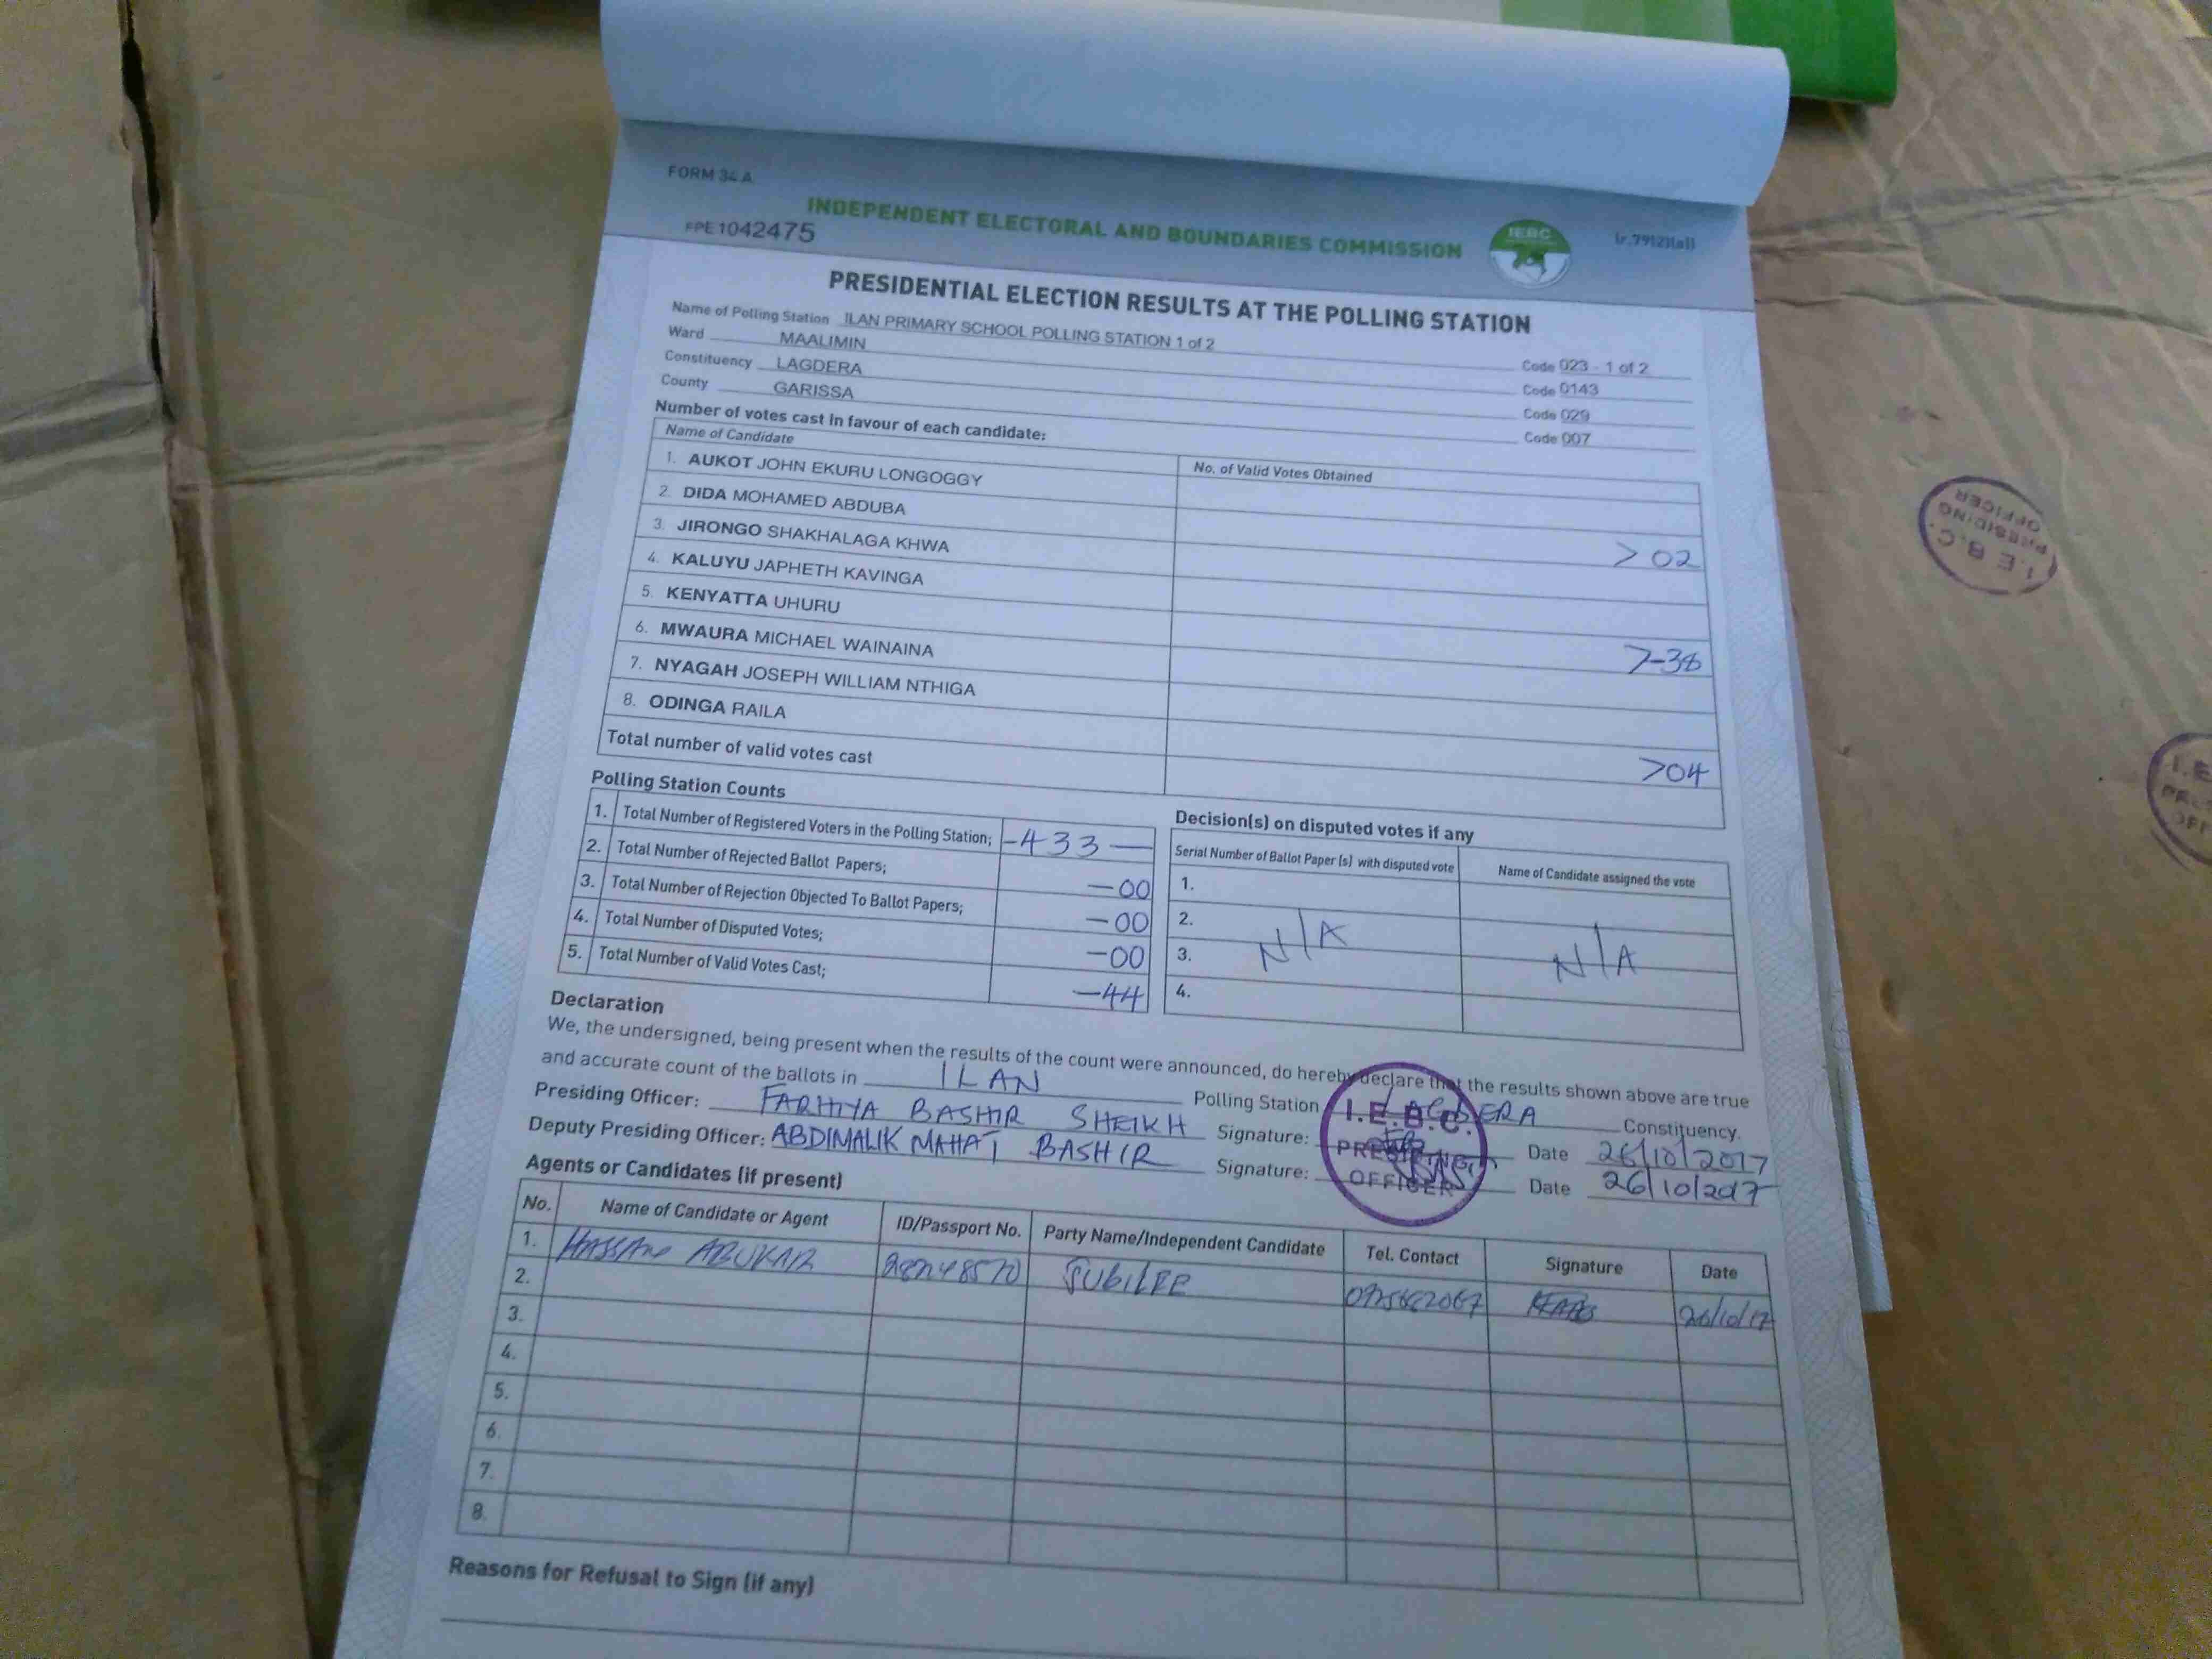 FORM 34 A
INDEPENDENT ELECTORAL AND BOUNDARIES COMMISSION
IEBC
(r.79(2)(a))
FPE1042475
PRESIDENTIAL ELECTION RESULTS AT THE POLLING STATION
Name of Polling Station ILAN PRIMARY SCHOOL POLLING STATION 1 of 2 Code 023 - 1 of 2
Ward MAALIMIN Code 0143
Constituency LAGDERA Code 029
County GARISSA Code 007
Number of votes cast in favour of each candidate:
Name of Candidate No. of Valid Votes Obtained
1. AUKOT JOHN EKURU LONGOGGY
2. DIDA MOHAMED ABDUBA > 02
3. JIRONGO SHAKHALAGA KHWA
4. KALUYU JAPHETH KAVINGA
5. KENYATTA UHURU >-38
6. MWAURA MICHAEL WAINAINA
7. NYAGAH JOSEPH WILLIAM NTHIGA
8. ODINGA RAILA >04
Total number of valid votes cast
Polling Station Counts
1. Total Number of Registered Voters in the Polling Station; -433—
2. Total Number of Rejected Ballot Papers; -00
3. Total Number of Rejection Objected To Ballot Papers; -00
4. Total Number of Disputed Votes; -00
5. Total Number of Valid Votes Cast; -44
Decision(s) on disputed votes if any
Serial Number of Ballot Paper (s) with disputed vote Name of Candidate assigned the vote
1.
2.
3. N/A N/A
4.
Declaration
We, the undersigned, being present when the results of the count were announced, do hereby declare that the results shown above are true
and accurate count of the ballots in ILAN Polling Station LAGDERA Constituency.
Presiding Officer: FARHIYA BASHIR SHEIKH Signature: Date 26/10/2017
Deputy Presiding Officer: ABDIMALIK MAHAT BASHIR Signature: Date 26/10/2017
I.E.B.C.
PRESIDING
OFFICER
Agents or Candidates (if present)
No. Name of Candidate or Agent ID/Passport No. Party Name/Independent Candidate Tel. Contact Signature Date
1. HASSAN ABUKAR JUBILEE 26/10/17
2.
3.
4.
5.
6.
7.
8.
Reasons for Refusal to Sign (if any)
I.E.B.C.
PRESIDING
OFFICER